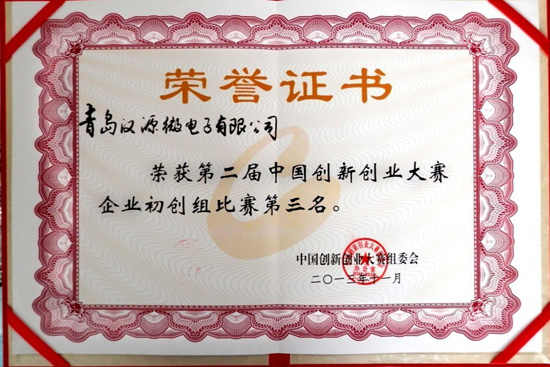 荣誉证书
青岛汉源微电子有限公司
荣获第二届中国创新创业大赛
企业初创组比赛第三名。
中国创新创业大赛组委会
二〇一三年十一月